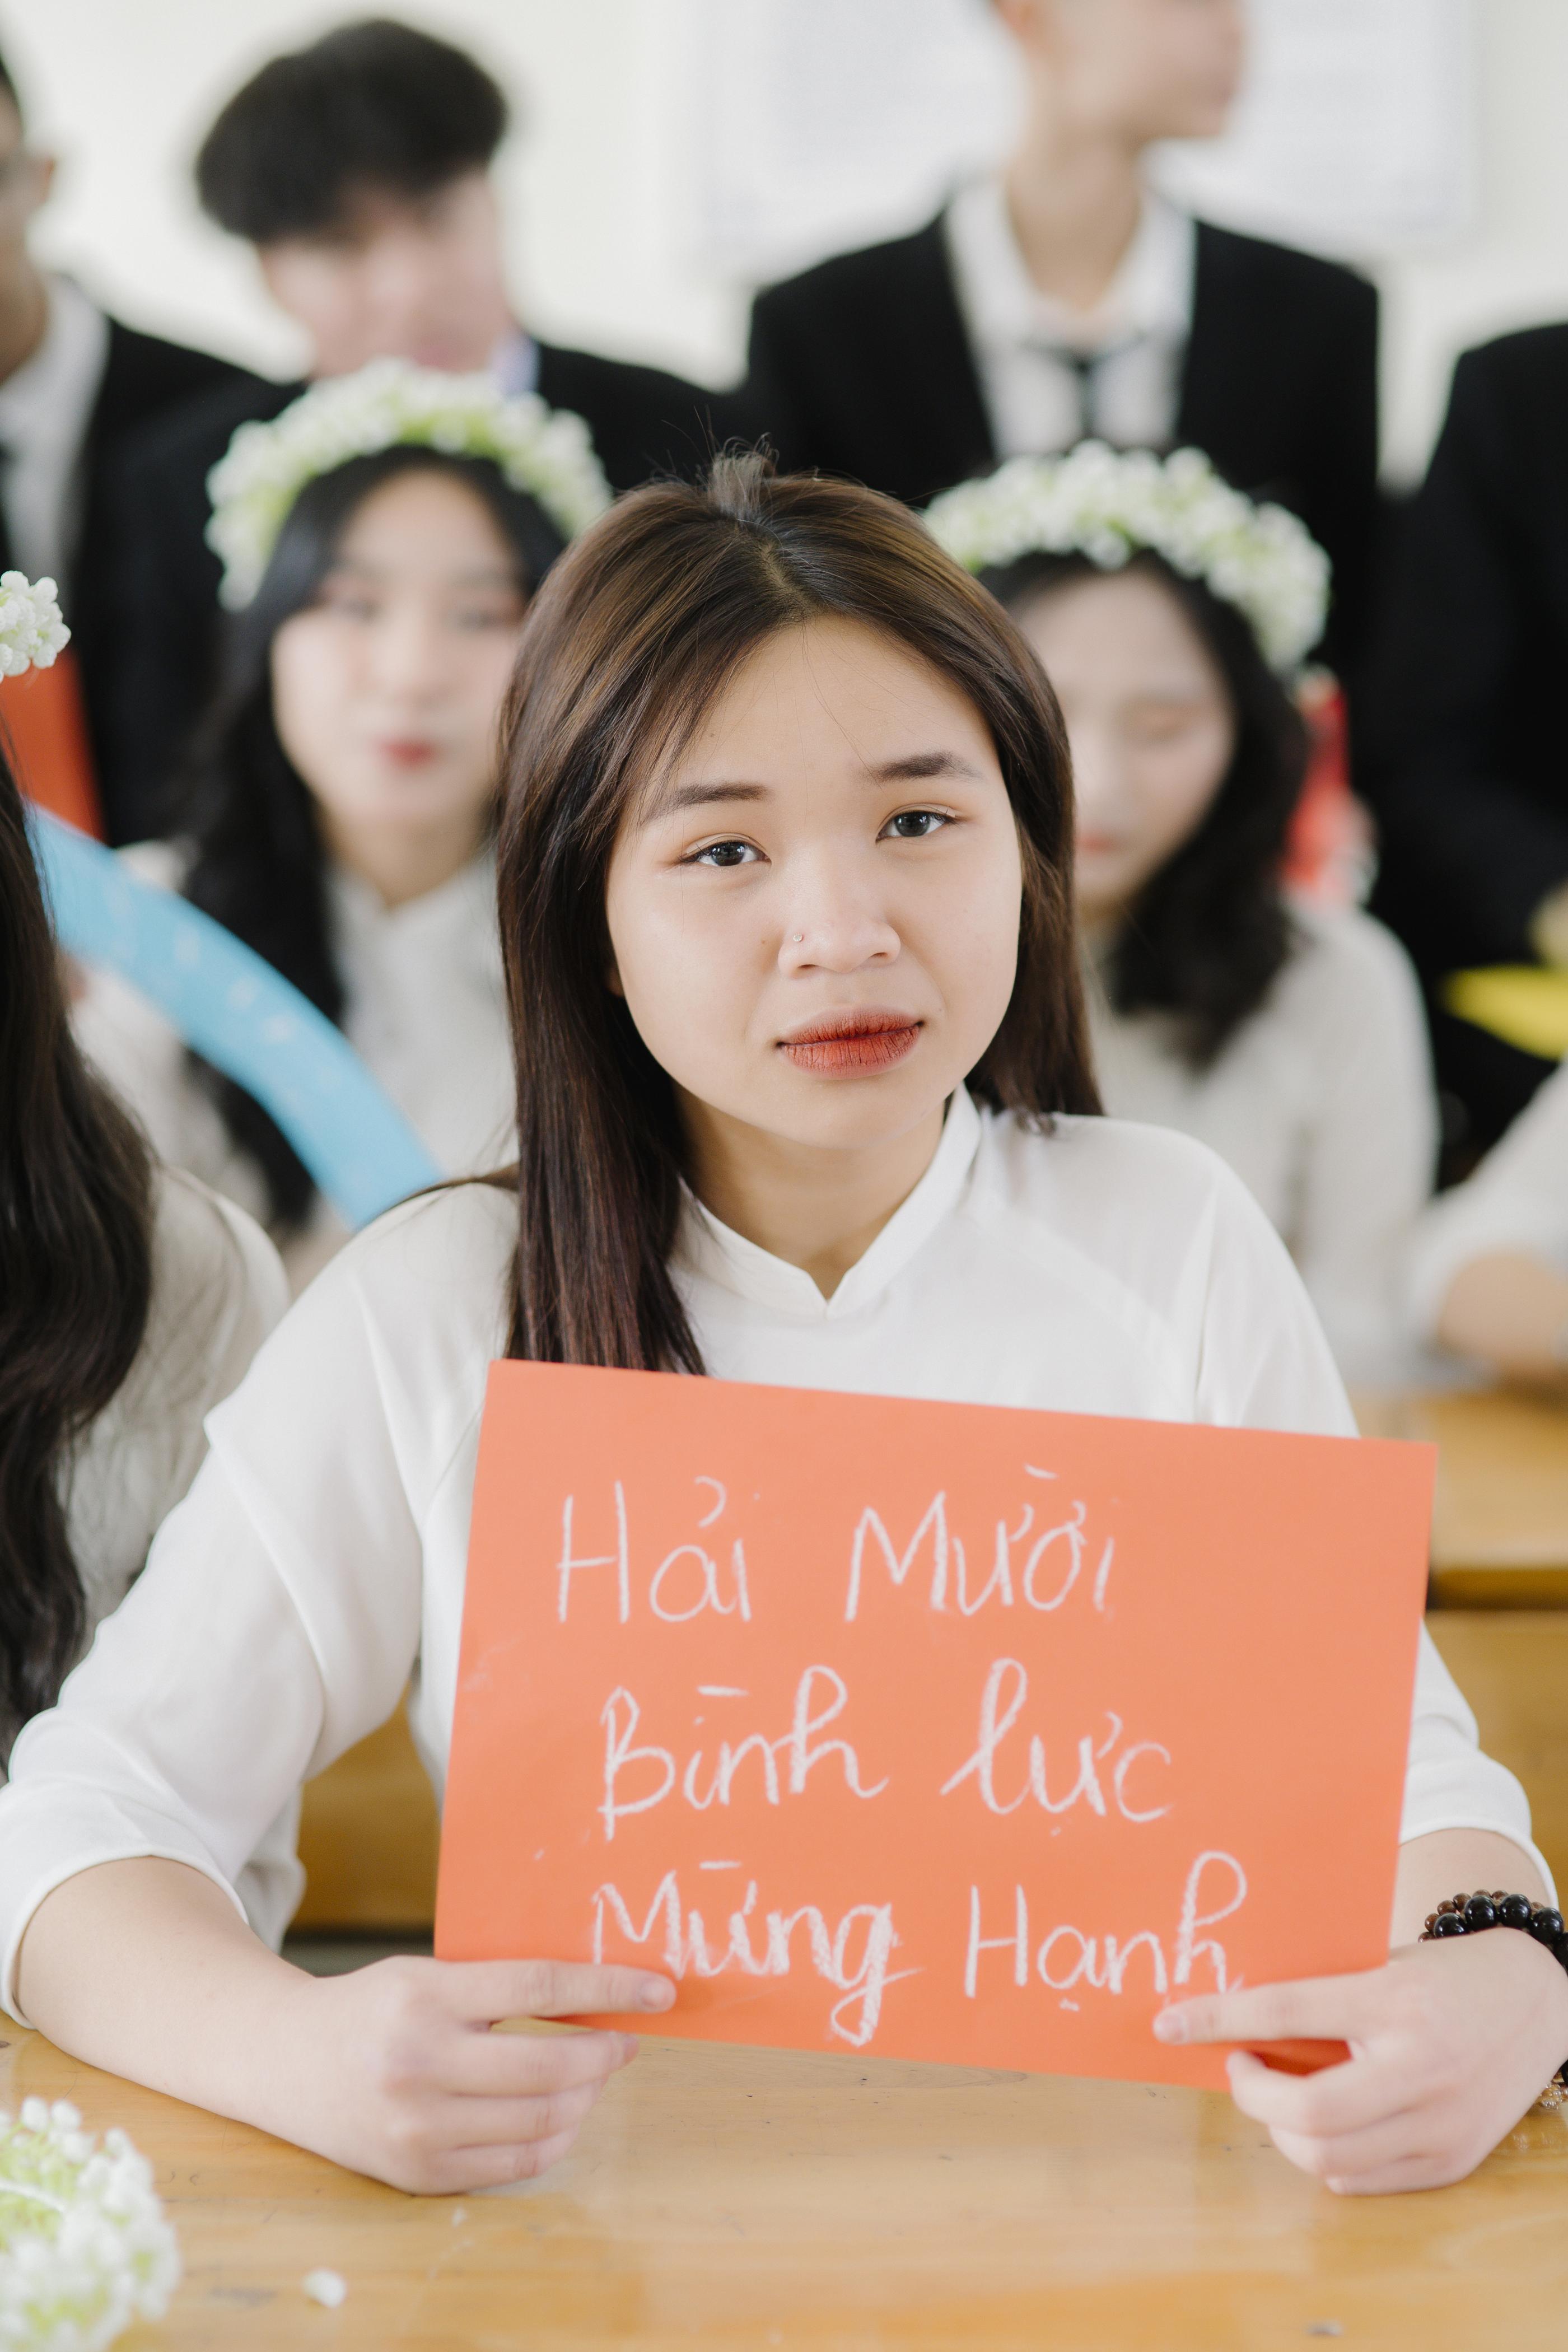 Hải Mười
Bình lực
Mừng Hạnh